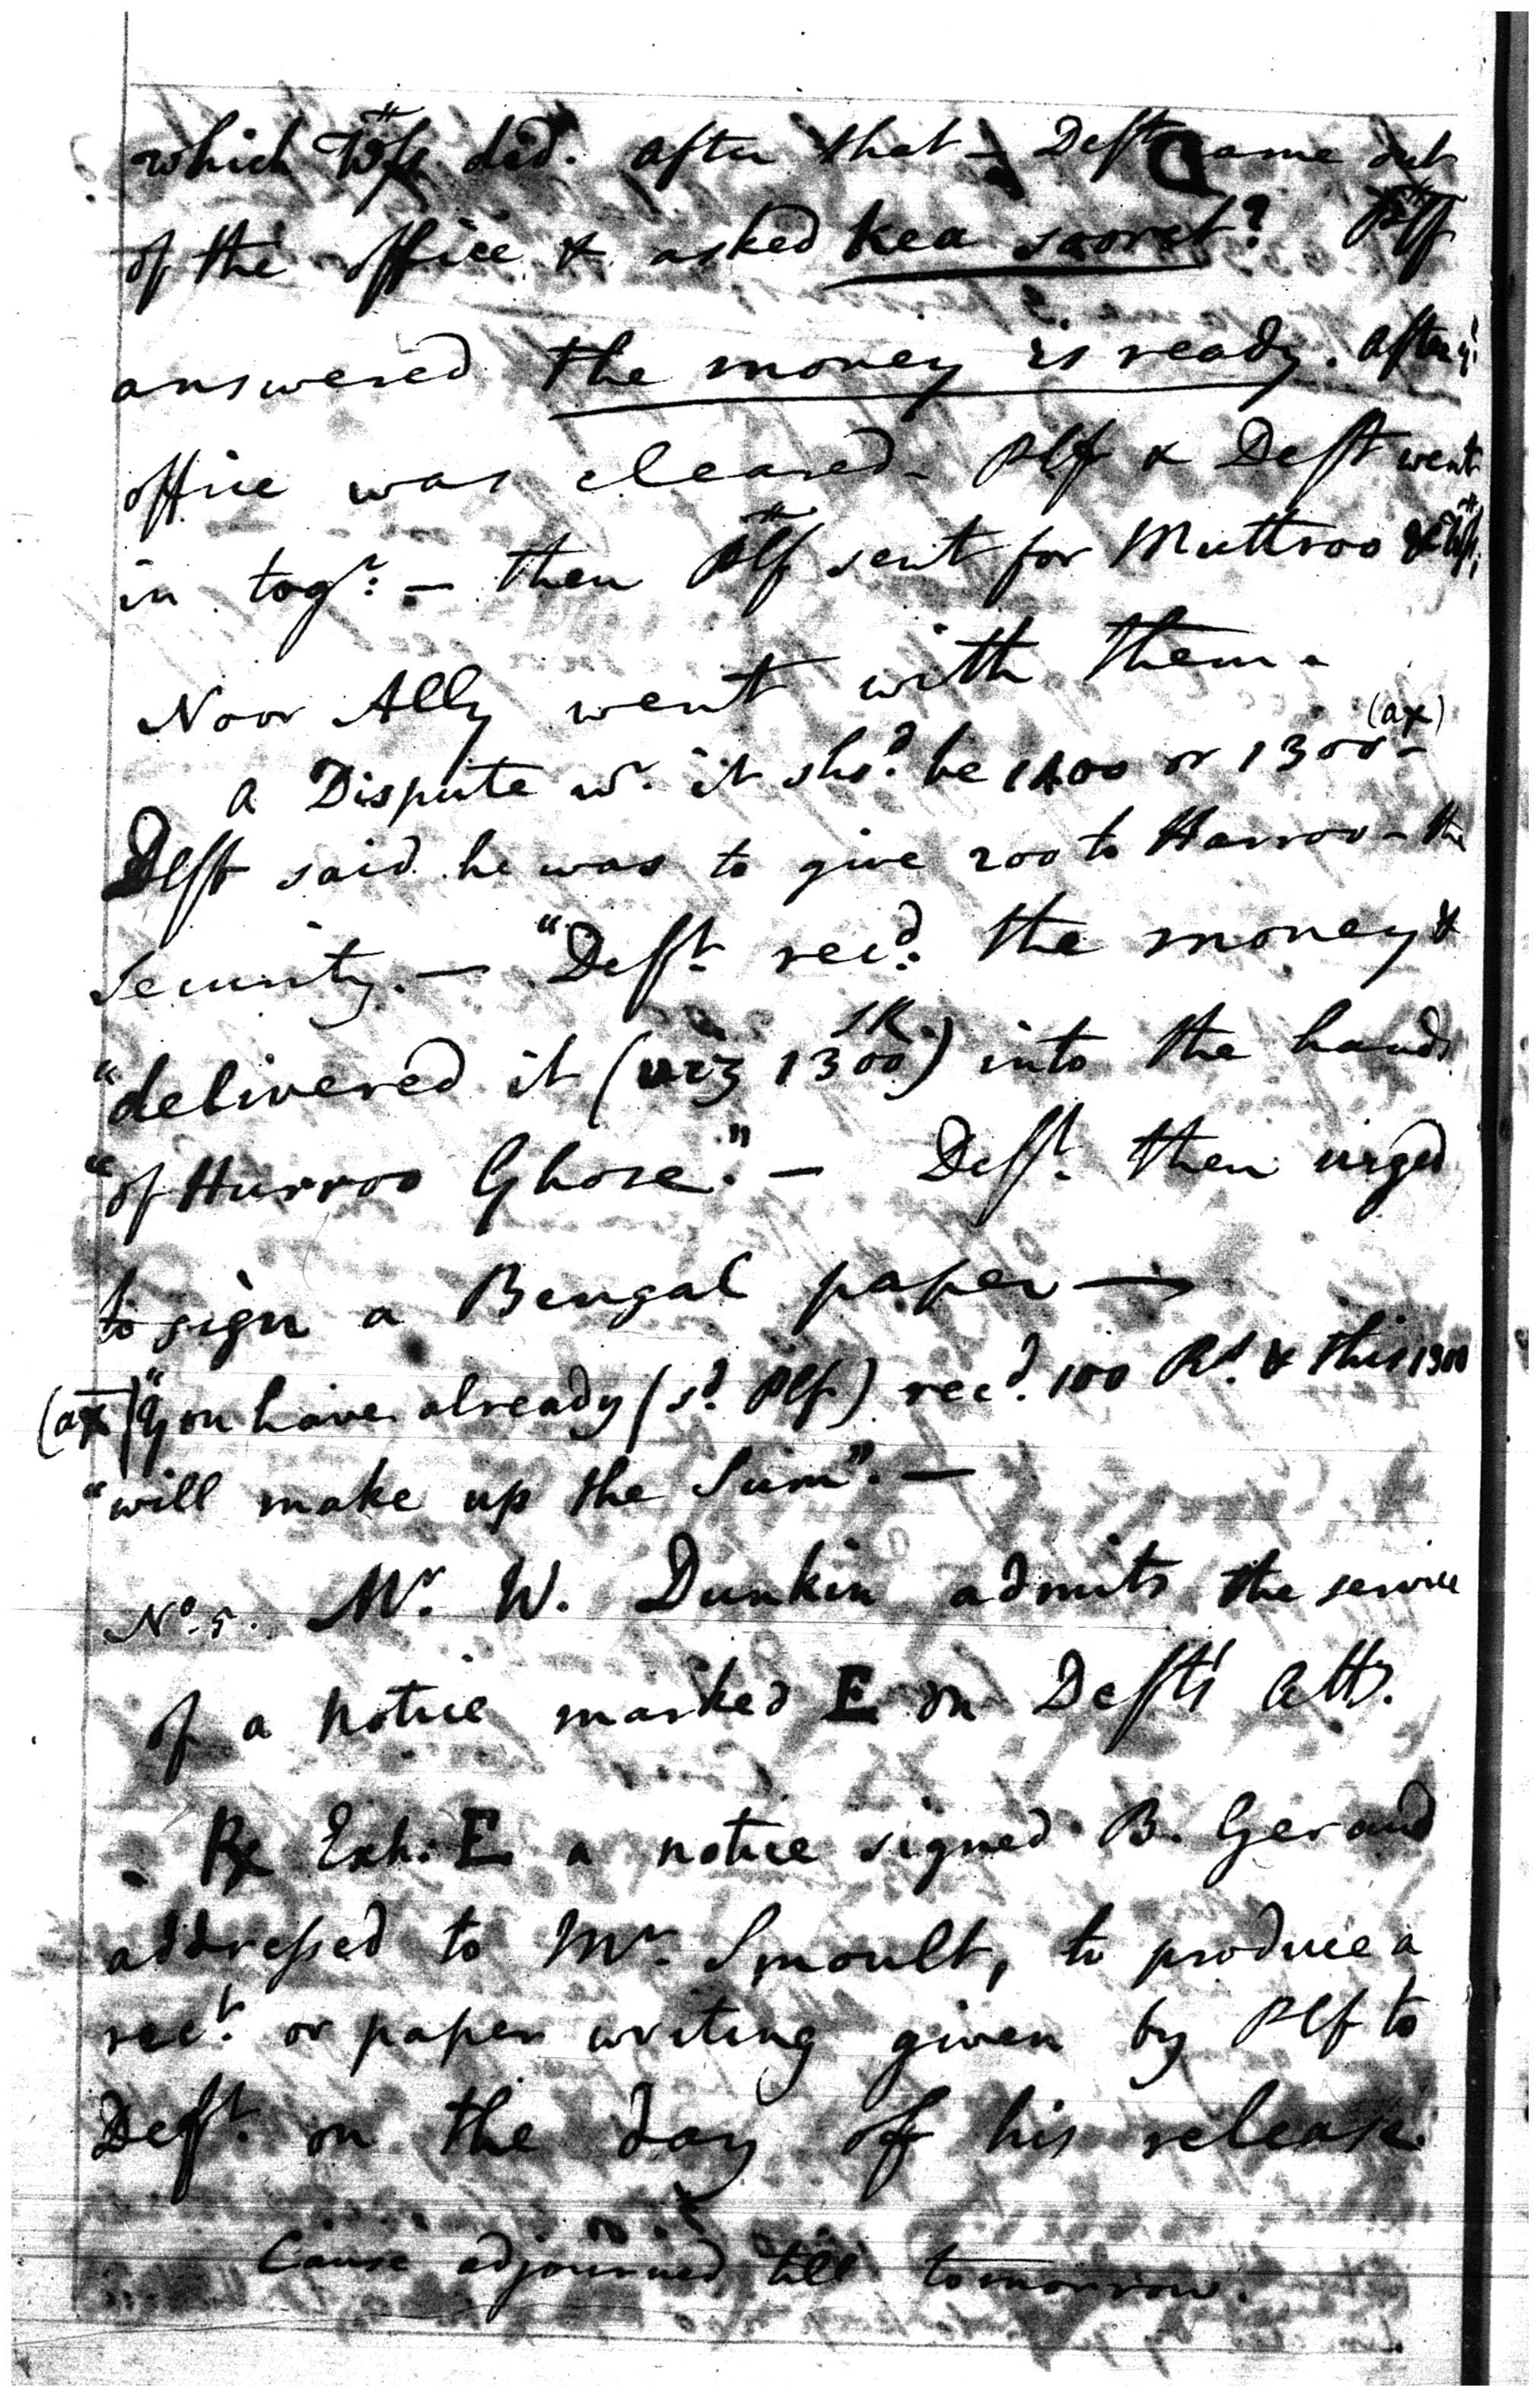 which Wts. did. after that - Deft came out
of the office & asked kea soorut? Plf
answered the money is ready. after ye.
office was cleared - Plf & Deft went
in togr: - then Plf sent for Muttroo &
Noor Ally went with them -
a Dispute wr. it shd. be 1400 or 1300 - (ax)
Deft said he was to give 200 to Harroo - the
Security. - "Deft. recd: the money &
"delivered it (viz 1300 SR.) into the hands
"of Hurroo Ghose." - Deft. then urged
to sign a Bengal paper -
(ax) "you have already (sd. Plf) recd. 100 Rs. & this 1300
"will make up the Sum". -
No. 5. Mr. W. Dunkin admits the service
of a notice marked E on Defts' Atty.
Rx Exh: E a notice signed B. Gerard
addressed to Mr. Smoult, to produce a
rect. or paper writing given by Plf to
Deft. on the day of his release.
Cause adjourned till tomorrow.